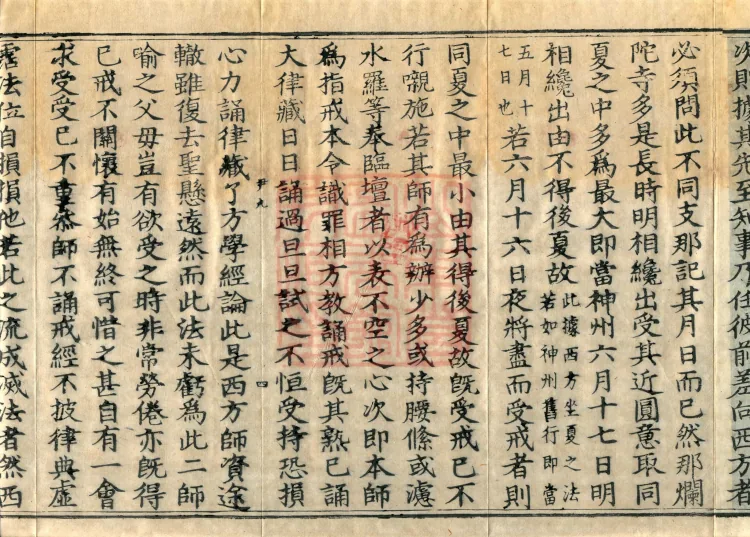 次則推其先至知事乃任彼前差向西方者
必須問此不同支那記其月日而已然那爛
陀寺多是長時明相纔出受其近圓意取同
夏之中多爲最大即當神州六月十七日明
相纔出由不得後夏故此據西方坐夏之法若如神州舊行即當
五月十七日也若六月十六日夜將盡而受戒者則
同夏之中最小由其得後夏故旣受戒已不
行嚫施若其師有爲辦少多或持腰絛或濾
水羅等奉臨壇者以表不空之心次即本師
爲指戒本令識罪相方教誦戒旣其熟已誦
大律藏日日誦過旦旦試之不恒受持恐損
九 四
心力誦律藏了方學經論此是西方師資途
轍雖復去聖懸遠然而此法未虧爲此二師
喻之父母豈有欲受之時非常勞倦亦旣得
已戒不關懷有始無終可惜之甚自有一會
求受受已不重叅師不誦戒經不披律典虛
霑法位自損損他若此之流成滅法者然西